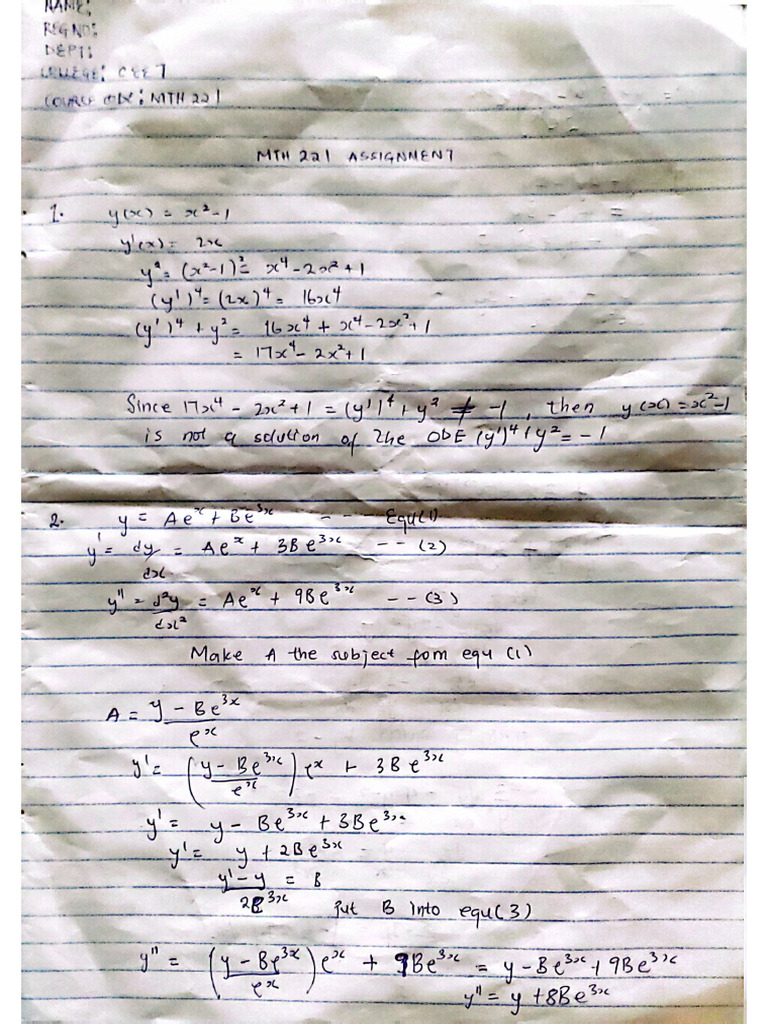 NAME:
REG NO:
DEPT:
COLLEGE: CEET
COURSE CODE: MTH 221
MTH 221 ASSIGNMENT
1. y(x) = x² - 1
y'(x) = 2x
y² = (x²-1)² = x⁴ - 2x² + 1
(y')⁴ = (2x)⁴ = 16x⁴
(y')⁴ + y² = 16x⁴ + x⁴ - 2x² + 1
= 17x⁴ - 2x² + 1
Since 17x⁴ - 2x² + 1 = (y')⁴ + y² ≠ -1, then y(x) = x²-1
is not a solution of the ODE (y')⁴ + y² = -1
2. y = Aeˣ + Be³ˣ - - - Equ(1)
y' = dy/dx = Aeˣ + 3Be³ˣ - - (2)
y'' = d²y/dx² = Aeˣ + 9Be³ˣ - - (3)
Make A the subject fom equ (1)
A = (y - Be³ˣ)/eˣ
y' = ((y - Be³ˣ)/eˣ) eˣ + 3Be³ˣ
y' = y - Be³ˣ + 3Be³ˣ
y' = y + 2Be³ˣ
(y' - y)/2e³ˣ = B put B into equ(3)
y'' = ((y - Be³ˣ)/eˣ) eˣ + 9Be³ˣ = y - Be³ˣ + 9Be³ˣ
y'' = y + 8Be³ˣ